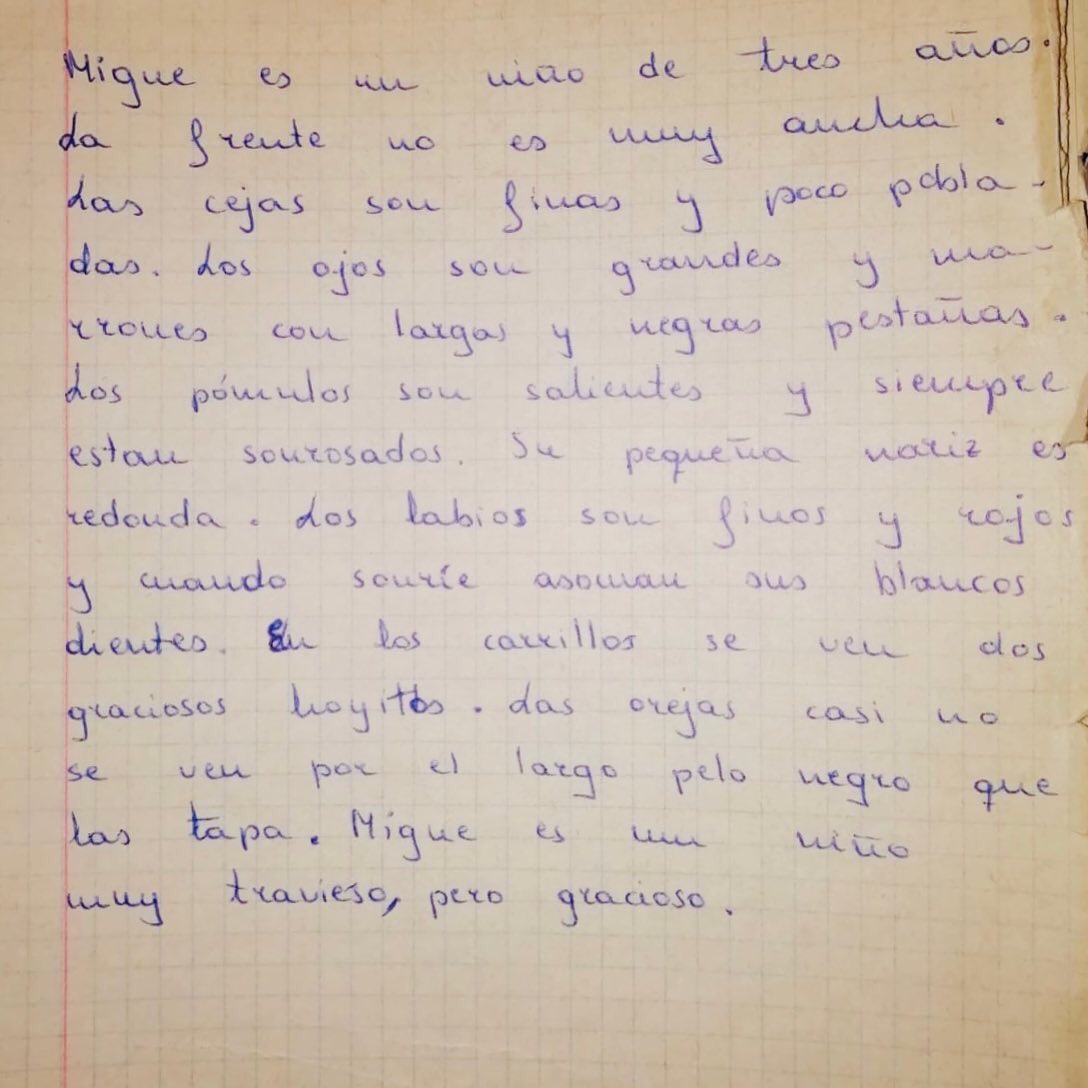 Migue es un niño de tres años.
La frente no es muy ancha.
Las cejas son finas y poco pobla-
das. Los ojos son grandes y ma-
rrones con largas y negras pestañas.
Los pómulos son salientes y siempre
estan sonrosados. Su pequeña nariz es
redonda. Los labios son finos y rojos
y cuando sonríe asoman sus blancos
dientes. En los carrillos se ven dos
graciosos hoyitos. Las orejas casi no
se ven por el largo pelo negro que
las tapa. Migue es un niño
muy travieso, pero gracioso.